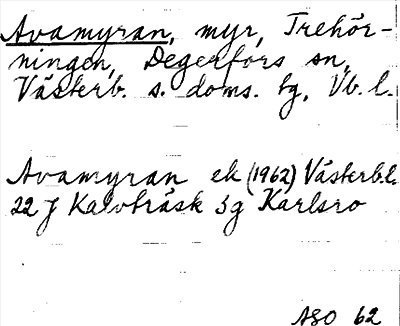 Avamyran, myr, Trehör-
ningen, Degerfors sn,
Västerb. s. doms. tg, Vb. l.
Avamyran ek (1962) Västerb.l.
22 J Kalvträsk 3g Karlsro
ASO 62